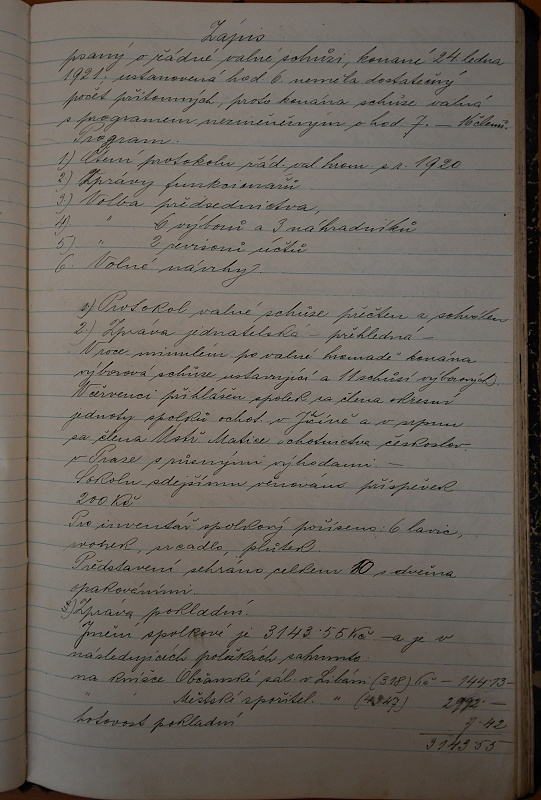 Zápis
psaný o řádné valné schůzi, konané 24 ledna
1921; ustanovená hod 6. neměla dostatečný
počet přítomných, proto konána schůze valná
s programem nezměněným o hod 7. — 16 členů.
Program.
1) Čtení protokolu řád. val. hrom. s r. 1920
2) Zprávy funkcionářů
3) Volba předsednictva,
4) " 6 výborů a 3 náhradníků
5) " 2 revisorů účtů
6. Volné návrhy.
1) Protokol valné schůze přečten a schválen
2.) Zpráva jednatelská — přehledná —
V roce minulém po valné hromadě konána
výborová schůze ustavující a 11 schůzí výborových.
V červenci přihlášen spolek za člena okresní
jednoty spolků ochot. v Jičíně a v srpnu
za člena Ústř. Matice ochotnictva českoslov.
v Praze s různými výhodami. —
Sokolu zdejšímu věnováno příspěvek
200 Kč
Pro inventář spolkový pořízeno: 6 lavic,
zrcadlo, plůtek.
Představení sehráno celkem 10 s dvěma
opakováními.
3) Zpráva pokladní.
Jmění spolkové je 3143·55 Kč — a je v
následujících položkách sahrnuto:
na knížce Občanské zál. v Libáni (318) Kč — 144·13
" " Městské spořitel. " (4347) 2992·—
hotovost pokladní 7·42
3143·55